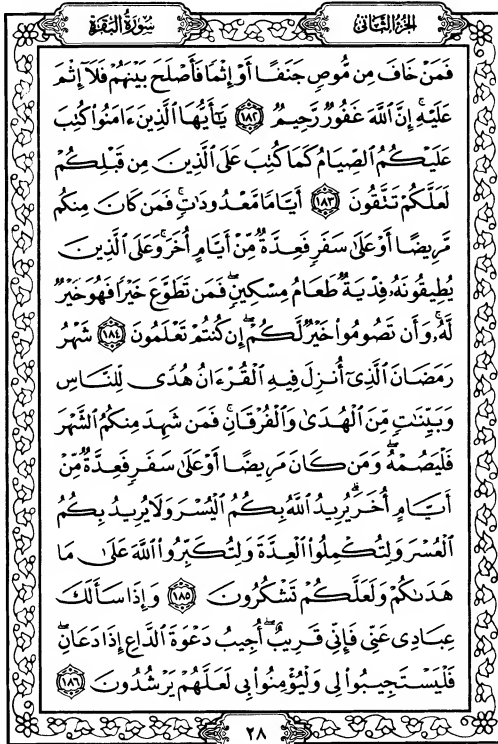 سُورَةُ البَقَرَةِ
الجُزءُ الثَّانِى
فَمَنْ خَافَ مِن مُّوصٍ جَنَفًا أَوْ إِثْمًا فَأَصْلَحَ بَيْنَهُمْ فَلَآ إِثْمَ
عَلَيْهِ ۚ إِنَّ ٱللَّهَ غَفُورٌ رَّحِيمٌ ١٨٢ يَـٰٓأَيُّهَا ٱلَّذِينَ ءَامَنُوا۟ كُتِبَ
عَلَيْكُمُ ٱلصِّيَامُ كَمَا كُتِبَ عَلَى ٱلَّذِينَ مِن قَبْلِكُمْ
لَعَلَّكُمْ تَتَّقُونَ ١٨٣ أَيَّامًا مَّعْدُودَٰتٍ ۚ فَمَن كَانَ مِنكُم
مَّرِيضًا أَوْ عَلَىٰ سَفَرٍ فَعِدَّةٌ مِّنْ أَيَّامٍ أُخَرَ ۚ وَعَلَى ٱلَّذِينَ
يُطِيقُونَهُۥ فِدْيَةٌ طَعَامُ مِسْكِينٍ ۖ فَمَن تَطَوَّعَ خَيْرًا فَهُوَ خَيْرٌ
لَّهُۥ ۚ وَأَن تَصُومُوا۟ خَيْرٌ لَّكُمْ ۖ إِن كُنتُمْ تَعْلَمُونَ ١٨٤ شَهْرُ
رَمَضَانَ ٱلَّذِىٓ أُنزِلَ فِيهِ ٱلْقُرْءَانُ هُدًى لِّلنَّاسِ
وَبَيِّنَـٰتٍ مِّنَ ٱلْهُدَىٰ وَٱلْفُرْقَانِ ۚ فَمَن شَهِدَ مِنكُمُ ٱلشَّهْرَ
فَلْيَصُمْهُ ۖ وَمَن كَانَ مَرِيضًا أَوْ عَلَىٰ سَفَرٍ فَعِدَّةٌ مِّنْ
أَيَّامٍ أُخَرَ ۗ يُرِيدُ ٱللَّهُ بِكُمُ ٱلْيُسْرَ وَلَا يُرِيدُ بِكُمُ
ٱلْعُسْرَ وَلِتُكْمِلُوا۟ ٱلْعِدَّةَ وَلِتُكَبِّرُوا۟ ٱللَّهَ عَلَىٰ مَا
هَدَىٰكُمْ وَلَعَلَّكُمْ تَشْكُرُونَ ١٨٥ وَإِذَا سَأَلَكَ
عِبَادِى عَنِّى فَإِنِّى قَرِيبٌ ۖ أُجِيبُ دَعْوَةَ ٱلدَّاعِ إِذَا دَعَانِ ۖ
فَلْيَسْتَجِيبُوا۟ لِى وَلْيُؤْمِنُوا۟ بِى لَعَلَّهُمْ يَرْشُدُونَ ١٨٦
٢٨